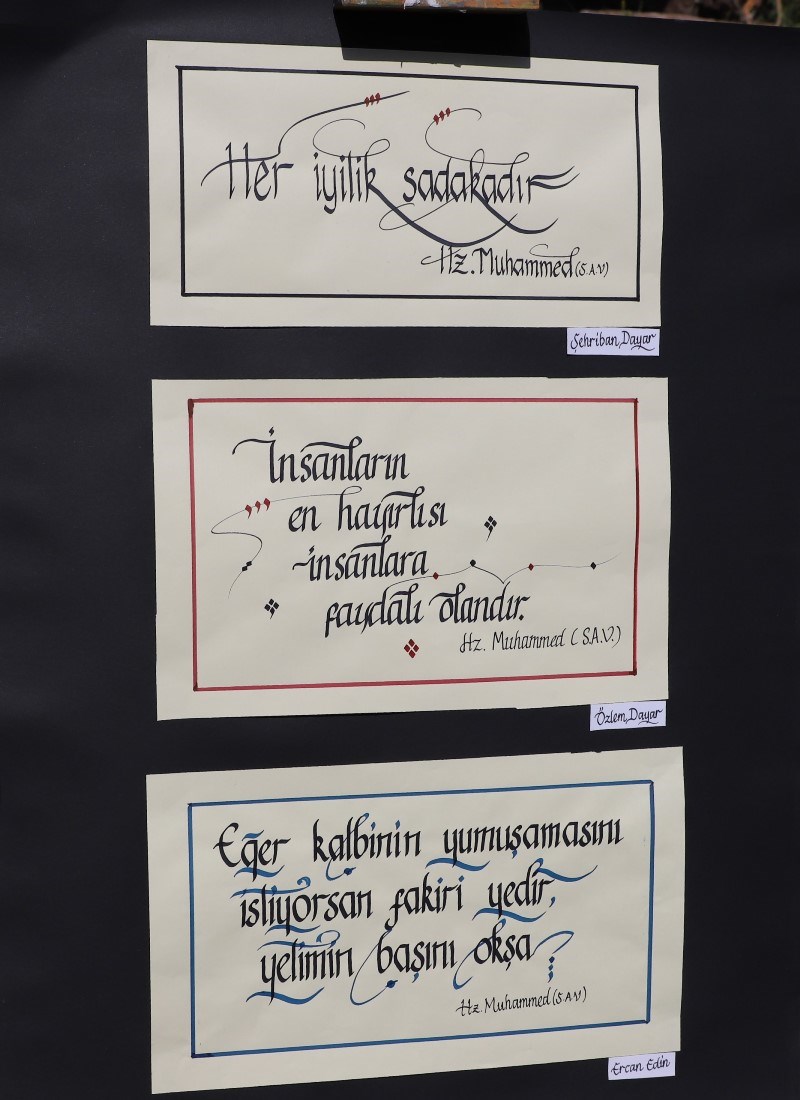 Her iyilik sadakadır
Hz. Muhammed (S.A.V)
Şehriban Dayar
İnsanların
en hayırlısı
insanlara
faydalı olandır.
Hz. Muhammed (S.A.V.)
Özlem Dayar
Eğer kalbinin yumuşamasını
istiyorsan fakiri yedir,
yetimin başını okşa
Hz. Muhammed (S.A.V)
Ercan Edin